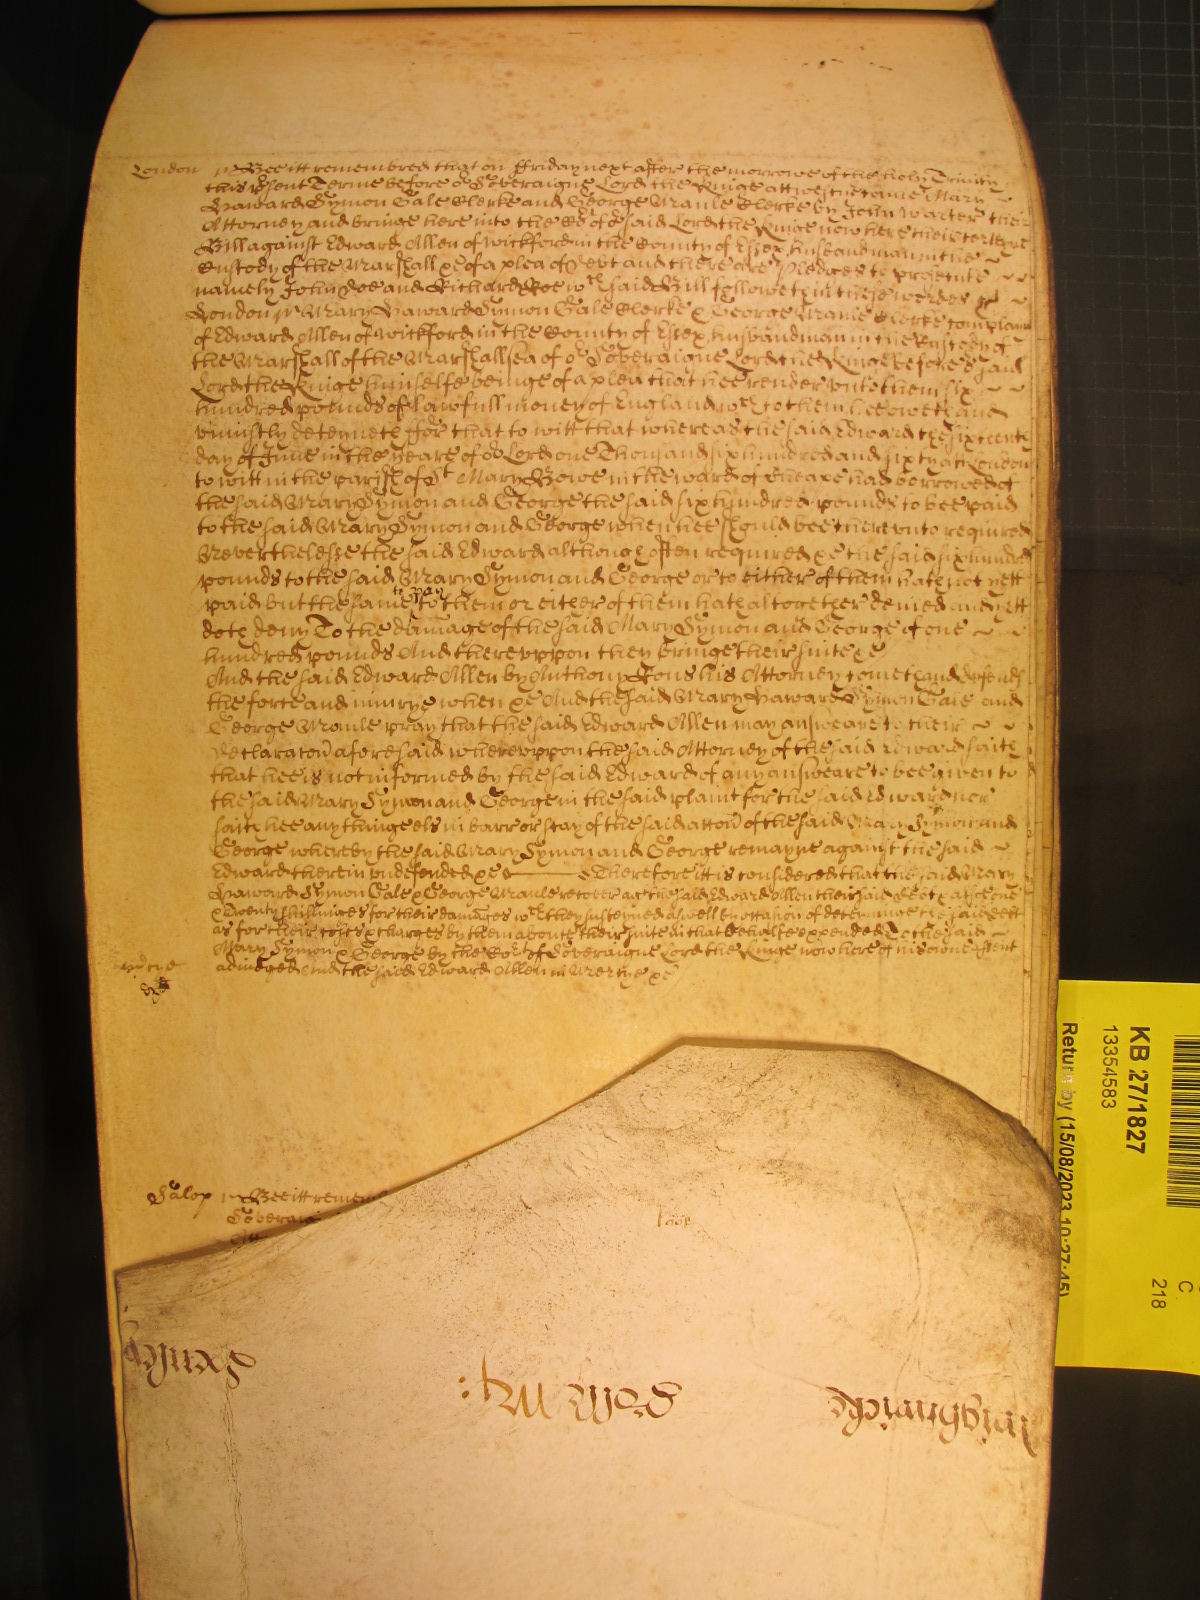 London ss Bee itt remembred that on ffriday next after the morrowe of the holy Trinity
this p'sent Terme before or Soveraigne Lord the Kinge att westm' came Mary
Haward Symon Gale Clerke and George Maule Clerke by John Walter their
Attorney and bringe here into the Co't of or said Lord the Kinge now here their certeyne
Bill against Edward Allen of Wickford in the County of Essex husbandman in the
Custody of the Marshall &c of a plea of Debt and there are Pledges to prosecute
namely John Doe and Richard Roe wch said Bill followeth in these wordes ss
London ss Mary Haward Symon Gale Clerke & George Maule Clerke complaine
of Edward Allen of Wickford in the County of Essex husbandman in the Custody of
the Marshall of the Marshallsea of or Soveraigne Lord the Kinge before ye said
Lord the Kinge himselfe beinge of a plea that hee render unto them six
hundred pounds of lawfull money of England wch to them hee oweth and
uniustly deteyneth ffor that to witt that whereas the said Edward the sixteenth
day of June in the yeare of or Lord one Thousand six hundred and sixty att London
to witt in the parish of St Mary Bowe in the ward of Cheape had borrowed of
the said Mary Symon and George the said six hundred pounds to bee paid
to the said Mary Symon and George when hee should bee thereunto required
Neverthelesse the said Edward although often required &c the said six hundred
pounds to the said Mary Symon and George or to either of them hath not yett
paid but the same to pay to them or either of them hath altogether denied and yett
doth deny To the damage of the said Mary Symon and George of one
hundred pounds And thereuppon they bringe their suite &c
And the said Edward Allen by Anthony Rous his Attorney cometh and defends
the force and iniurye when &c And the said Mary Haward Symon Gale and
George Maule pray that the said Edward Allen may answeare to their
Declarac'on aforesaid whereuppon the said Attorney of the said Edward saith
that hee is not informed by the said Edward of any answeare to bee given to
the said Mary Symon and George in the said plaint for the said Edward nor
saith hee any thinge els in barr or stay of the said acc'on of the said Mary Symon and
George whereby the said Mary Symon and George remayne against the said
Edward therein undefended &c Therefore itt is considered that the said Mary
Haward Symon Gale & George Maule recover agt the said Edward Allen their said debt & alsoe
& Twenty shillinges for their damages wch they susteyned aswell by occasion of deteyninge the said debt
as for their costs & charges by them aboute their suite in that behalfe expended To the said
Mary Symon & George by the Co't of or Soveraigne Lord the Kinge now here of his owne assent
adiudged And the said Edward Allen in Mercye &c
Salop ss Bee itt remem
Soverai
Roll
KB 27/1827
13354583
Return by (15/08/2023 10:27:45)
C
218